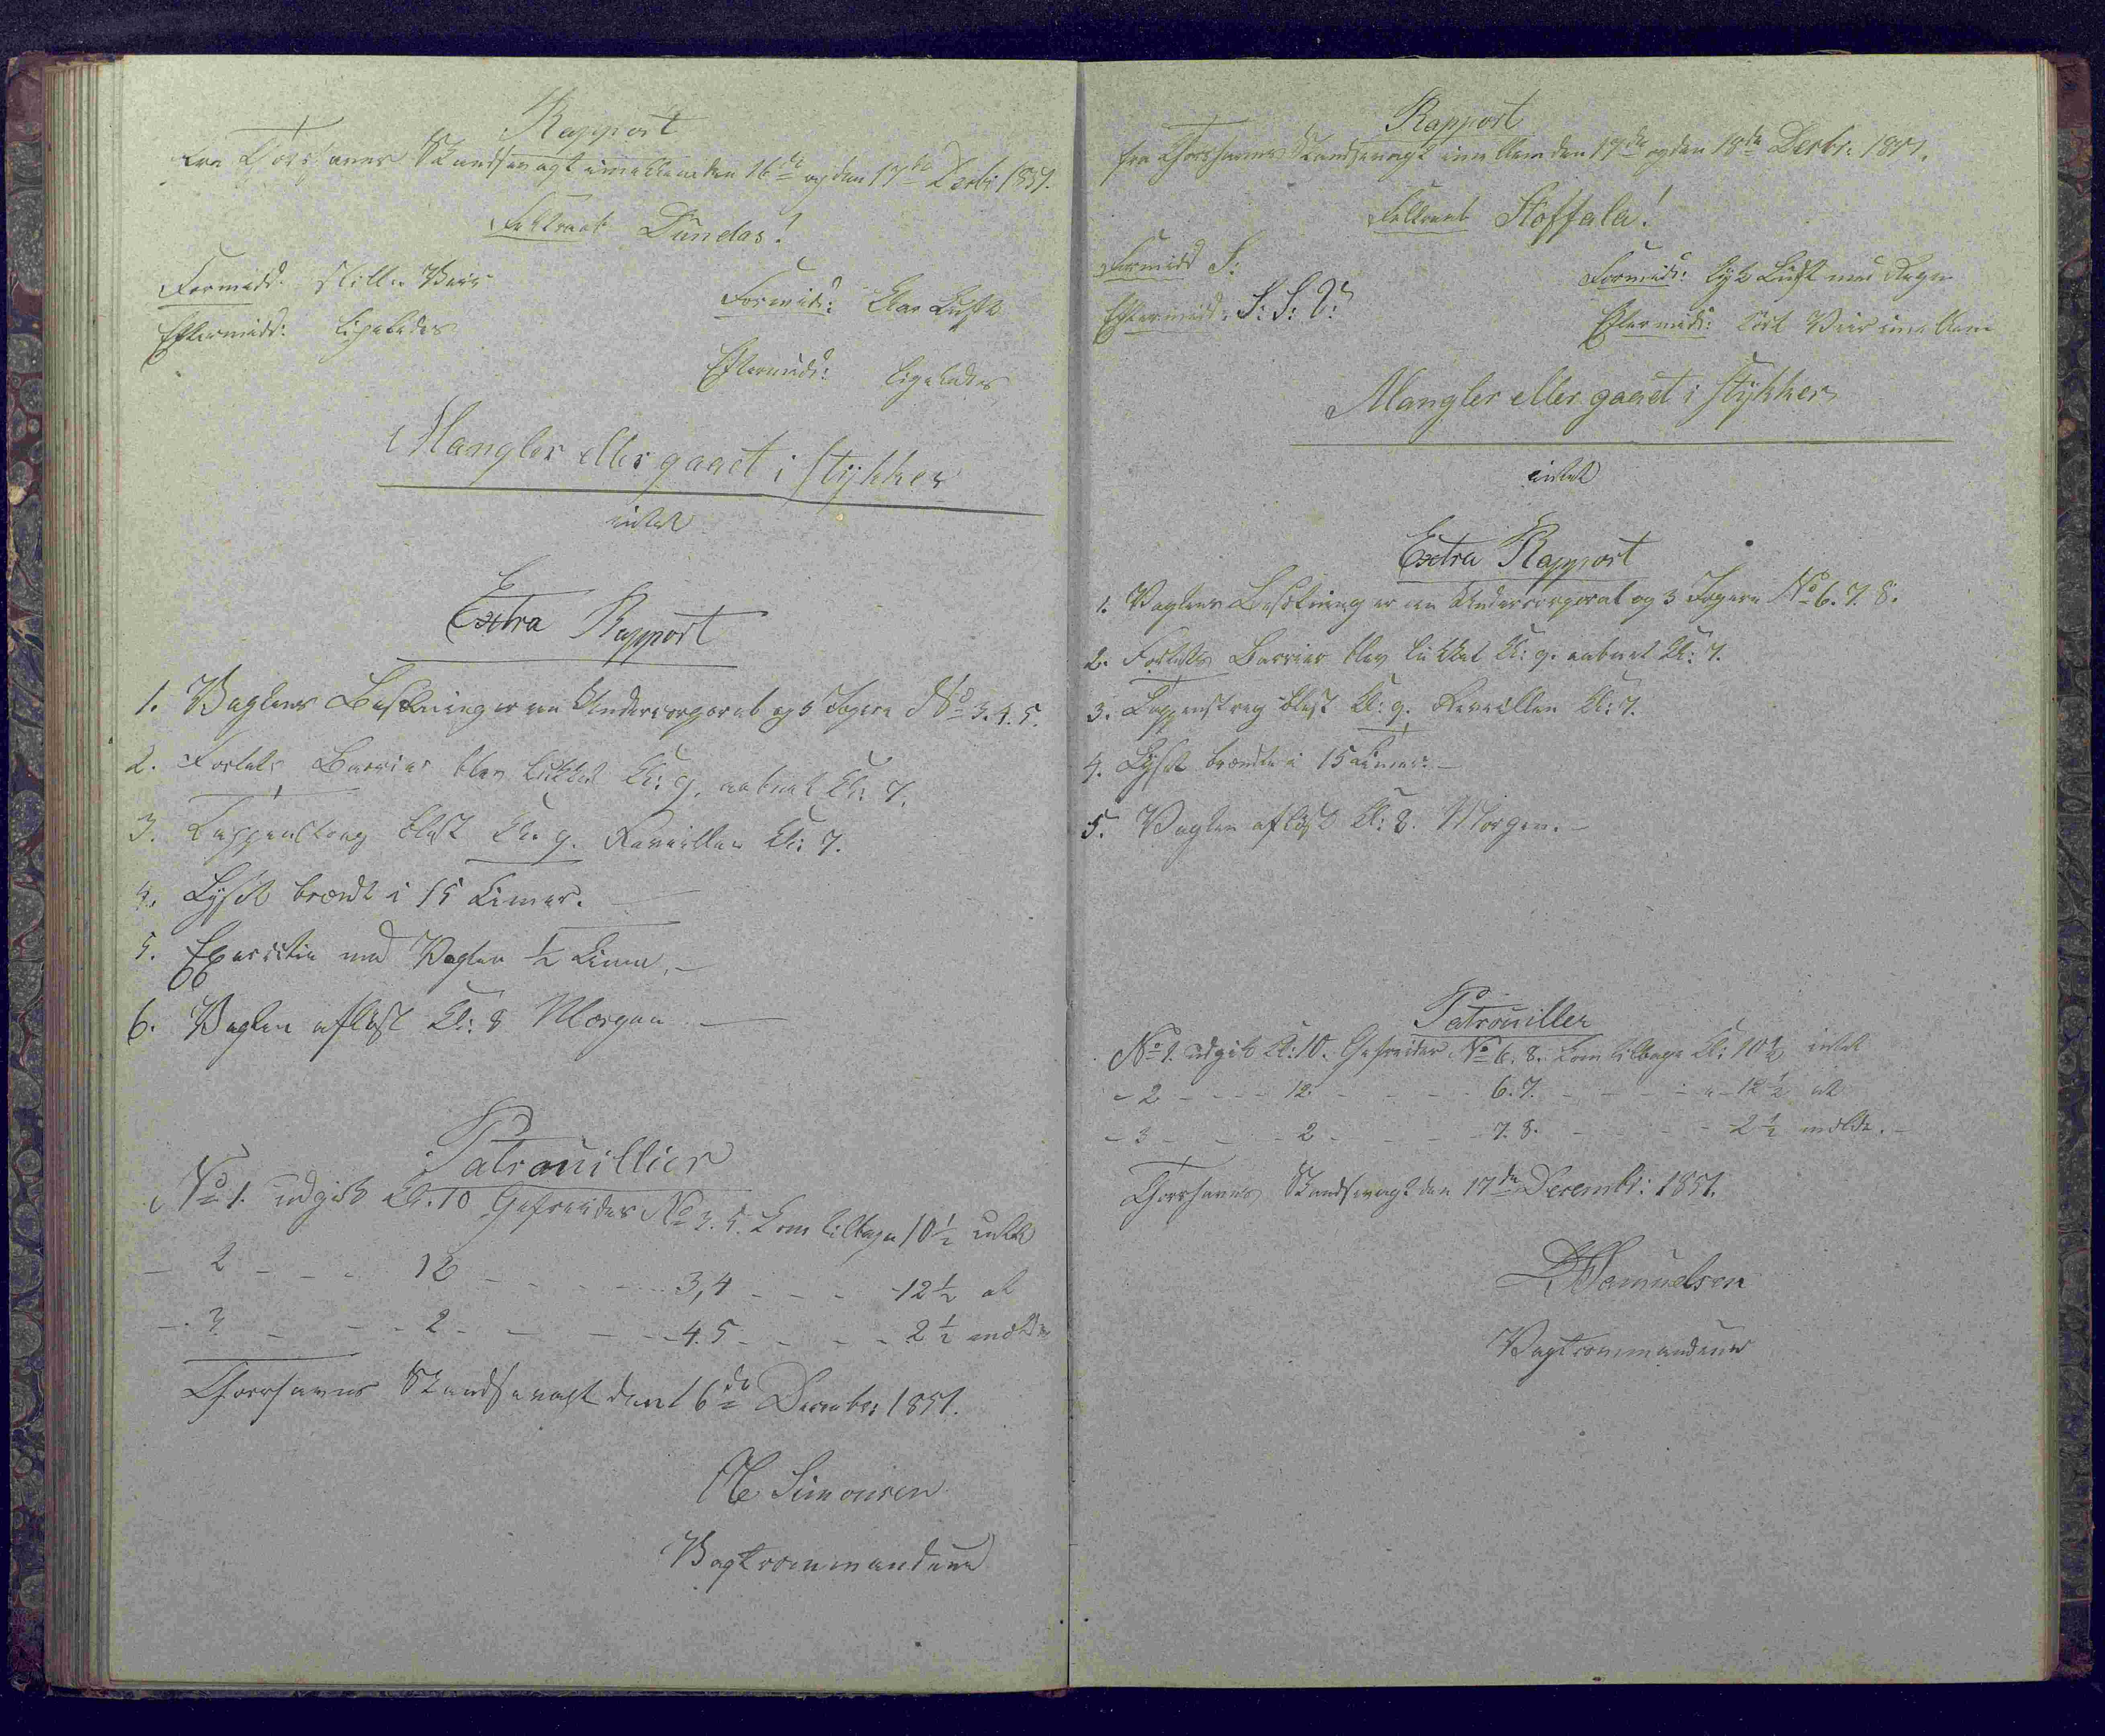 Rapport
fra Thorshavns Skandsevagt imellem den 16de og den 17de Decbr: 1851.
Feltraab Dundas!
Formidd: stille Veir
Eftermidd: ligeledes
Formidd: klar Luft
Eftermidd: ligeledes
Mangler eller gaaet i stykker
intet
Extra Rapport
1. Vagtens Besætning er en Undercorporal og 3 Jægere No 3. 4. 5.
2. Fortets Barrier blev lukket Kl: 9. aabnet Kl: 7.
3. Tappenstreg blæst Kl. 9. Reveillen Kl: 7.
4. Lyset brændt i 15 Timer. –
5. Exersitie med Vagten ½ Time. –
6. Vagten afløst Kl: 8 Morgen –
Patrouillier
No 1. udgik Kl. 10 Gefreider No 3. 5. kom tilbage 10½ intet
– 2 – – – 12 – – – – 3,4 – – – 12½ at
– 3 – – – 2 – – – – 4.5 – – – – 2½ melde
Thorshavns Skandsevagt den 16de Decembr: 1851.
Simonsen
Vagtcommandeur
Rapport
fra Thorshavns Skandsevagt imellem den 17de og den 18de Decbr: 1851.
Feltraab Stoffala!
Formidd S:
Eftermidd: S: S: V:
Formidd: tyk Luft med Regn
Eftermidd: tört Veir imellem
Mangler eller gaaet i stykker
intet
Extra Rapport
1. Vagtens Besætning er en Undercorporal og 3 Jægere No 6. 7. 8.
2. Fortets Barrier blev lukket Kl: 9. aabnet Kl: 7.
3. Tappenstreg blæst Kl: 9. Reveillen Kl: 7.
4. Lyset brændte i 15 Timer: –
5. Vagten afløst Kl: 8. Morgen. –
Patrouiller
No 1. udgik Kl: 10. Gefreider No 6. 8. kom tilbage Kl: 10½ intet
– 2 – – – 12 – – – – 6. 7. – – – – 12½ at
– 3 – – – 2 – – – – 7. 8. – – – – 2½ melde. –
Thorshavns Skandsevagt den 17de Decembr: 1851.
Samuelsen
Vagtcommandeur